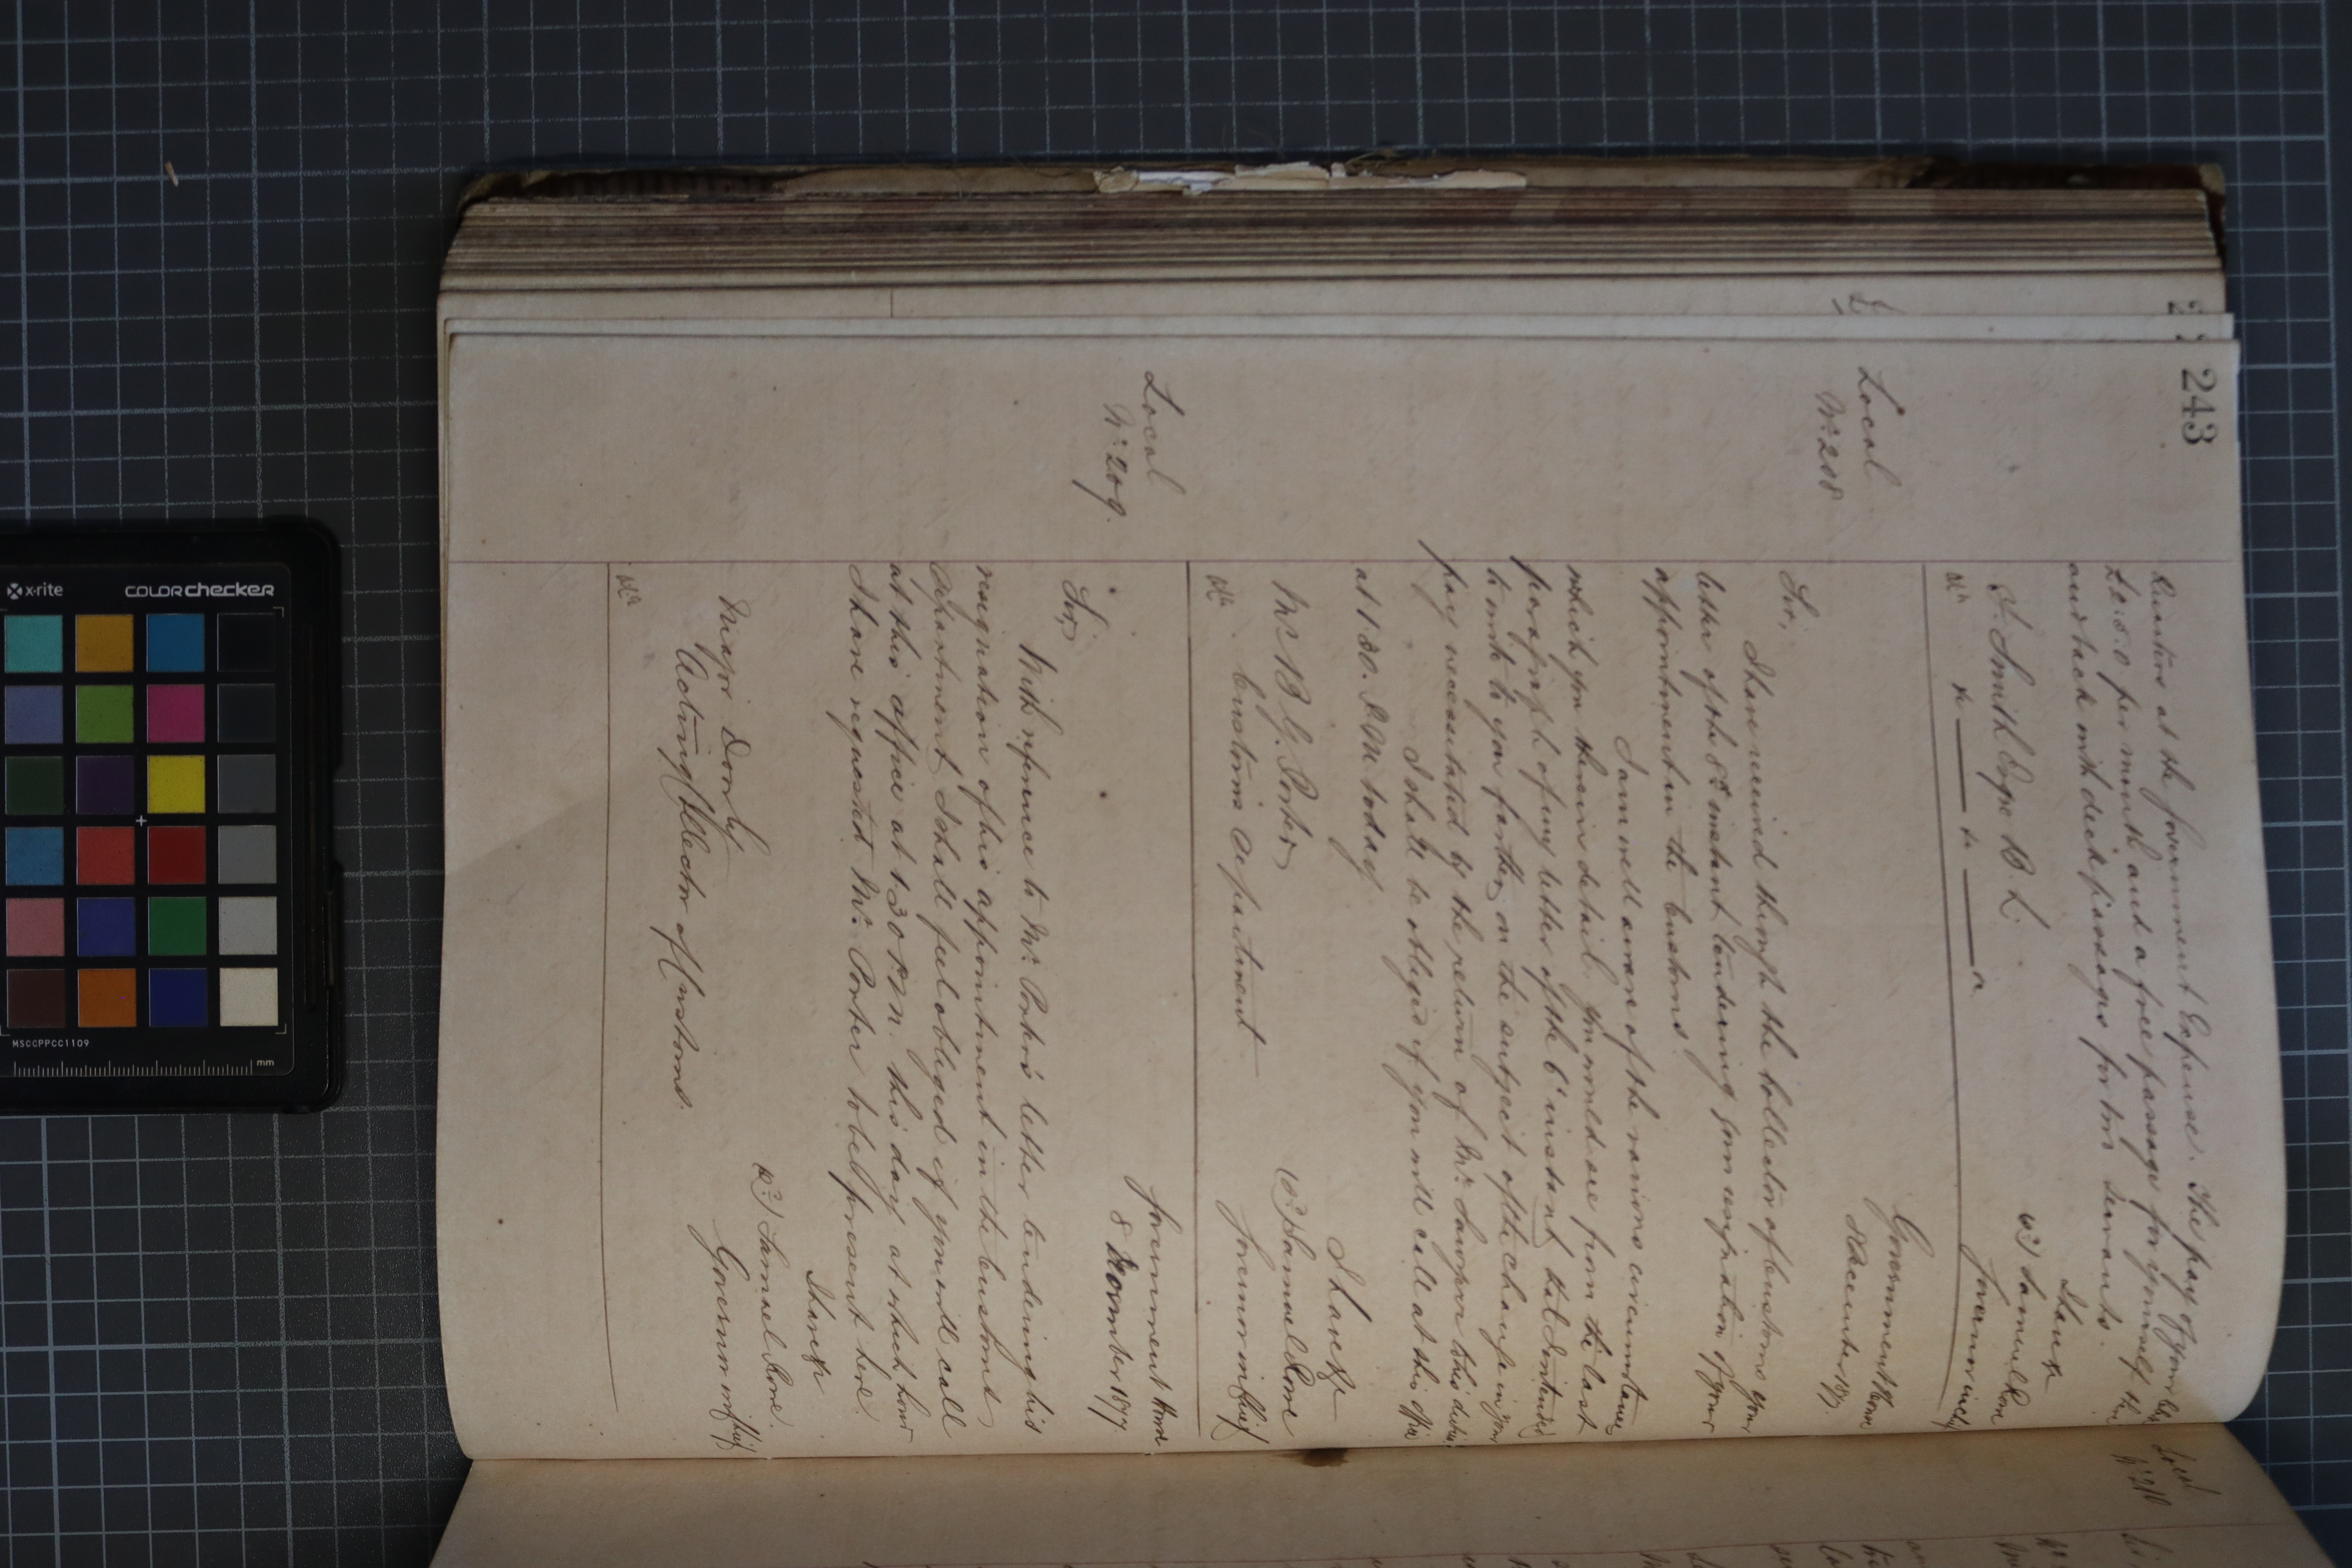 243
Quarters at the Government Expense. The pay of your
£2:5:0 per month and a free passage for yourself
and back with deck passages for two servants.
I have &c
(sd) Samuel Rowe
Governor in Chief
S. Smith Esqre B. L.
Local
No. 208
Government House
December 187
Sir,
I have received through the Collector of Customs your
letter of the 8th instant tendering your resignation of your
appointment in the Customs.
I am well aware of the various circumstances
which you therein detail. You would see from the last
paragraph of my letter of the 6th instant that I intended
to write to you further on the subject of the change in your
pay necessitated by the return of Mr. Lawson to his duties
I shall be obliged if you will call at this office
at 1.30. P.M. today.
I have &c
(sd) Samuel Rowe
Governor in Chief
Mr B. G. Porter
Customs Department
Local
No. 209.
Government House
8 December 1877.
Sir,
With reference to Mr. Porter's letter tendering his
resignation of his appointment in the Customs
Department I shall feel obliged if you will call
at this office at 1.30 P.M. this day at which hour
I have requested Mr. Porter to be present here.
I have &c
(sd) Samuel Rowe.
Governor in Chief
Major Dorly
Acting Collector of Customs.
Local
No. 210
x-rite
COLORchecker
MSCCPPCC1109
mm